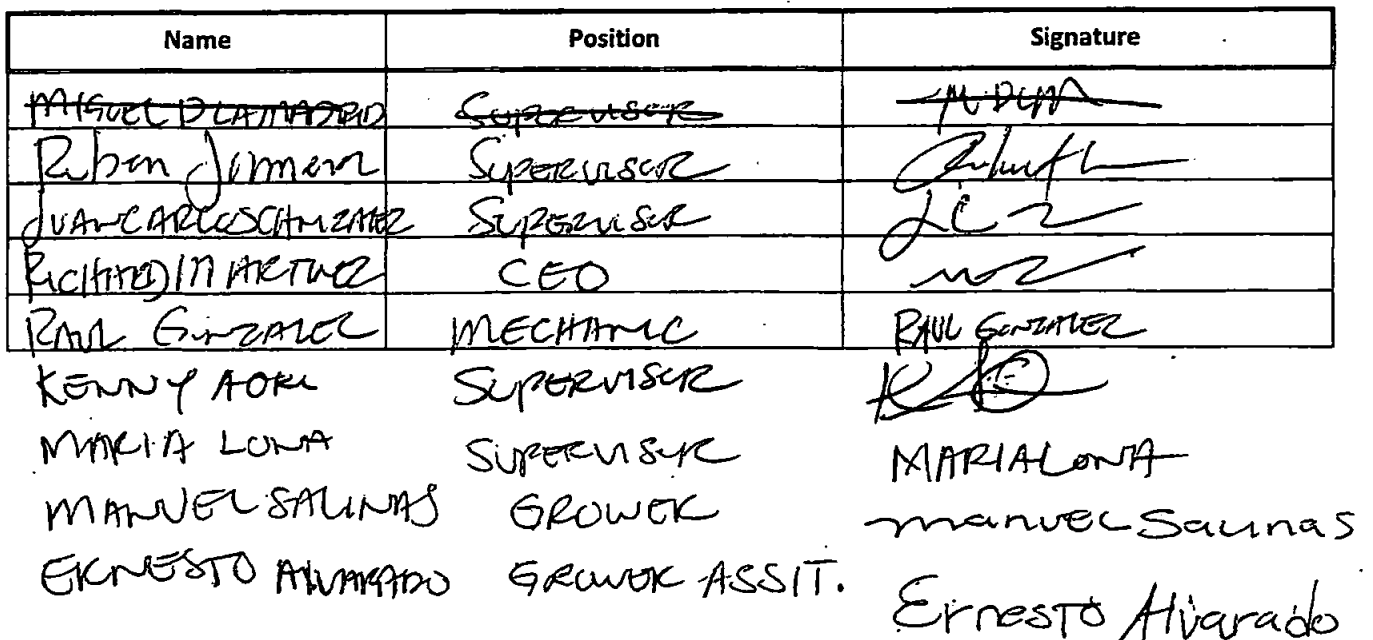 Name Position Signature
MIGUEL DLAMADRID SUPERVISOR
Ruben Jimenez SUPERVISOR
JUAN CARLOS GONZALEZ SUPERVISOR
RICHARD MARTINEZ CEO
RAUL GONZALEZ MECHANIC RAUL GONZALEZ
KENNY AOKI SUPERVISOR
MARIA LUNA SUPERVISOR MARIA LUNA
MANUEL SALINAS GROWER manuel Salinas
ERNESTO ALVARADO GROWER ASSIT. Ernesto Alvarado